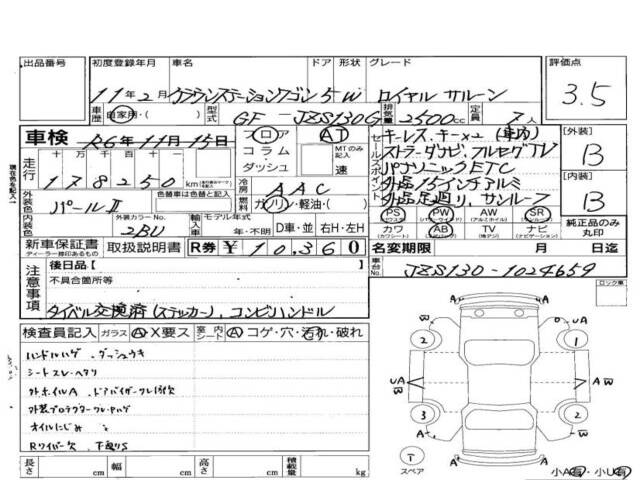 出品番号 初度登録年月 車名 ドア 形状 グレード 評価点
11年2月 クラウンステーションワゴン 5 W ロイヤル サルーン 3.5
車歴 自家用・ 型式 GF - JZS130G 排気量 2500cc 定員 7人
車検 R6年11月15日 フロア コラム ダッシュ AT MTのみ記入 速
セールスポイント
キーレス、キー×2 (車内)
ストラーダナビ、フルセグTV
パナソニックETC
外品15インチアルミ
外品足廻り、サンルーフ
[外装] B
[内装] B
現在色を記入
走行 十万 万 千 百 十 一
178250 km
冷房 AAC
外装色 パールII 色替車は色替と記入 燃料 ガソリン・軽油・( )
内装色 外装カラーNo. 2BU 輸入車 モデル年式 年・不明 D車・並 右H・左H
PS PW AW SR
カワ AB TV ナビ
純正品のみ丸印
新車保証書 取扱説明書 R券 ¥10,360 名変期限 月 日迄
ディーラー捺印あるもの
車台No. JZS130-1024659
注意事項 後日品[ ]
不具合箇所等
タイベル交換済(ステッカー)、コンビハンドル
ロック車
検査員記入 ガラス A・X要ス 室内シート A コゲ・穴・汚れ・破れ
ハンドルハゲ、ダッシュウキ
シートスレ・ヘタリ
外ホイルA、ドアバイザーワレ
オイルにじみ
Rワイパー欠、下廻りS
長さ cm 幅 cm 高さ cm 積載量 kg
A UA
2 1
W W
UA W A AW
3 2
W A A W
T スペア
小A有・小U有